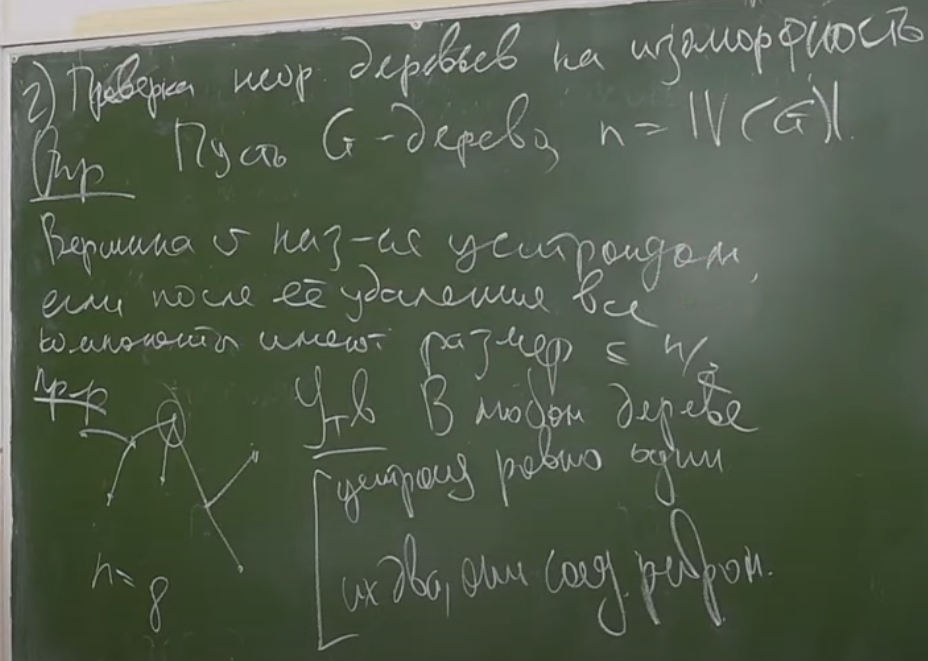 2) Проверка неор. деревьев на изоморфность
Опр Пусть G - дерево, n = |V(G)|.
Вершина v наз-ся центроидом,
если после её удаления все
компоненты имеют размер ≤ n/2
Пр-р Утв В любом дереве
центроид ровно один
их два, они соед. ребром.
n = 8